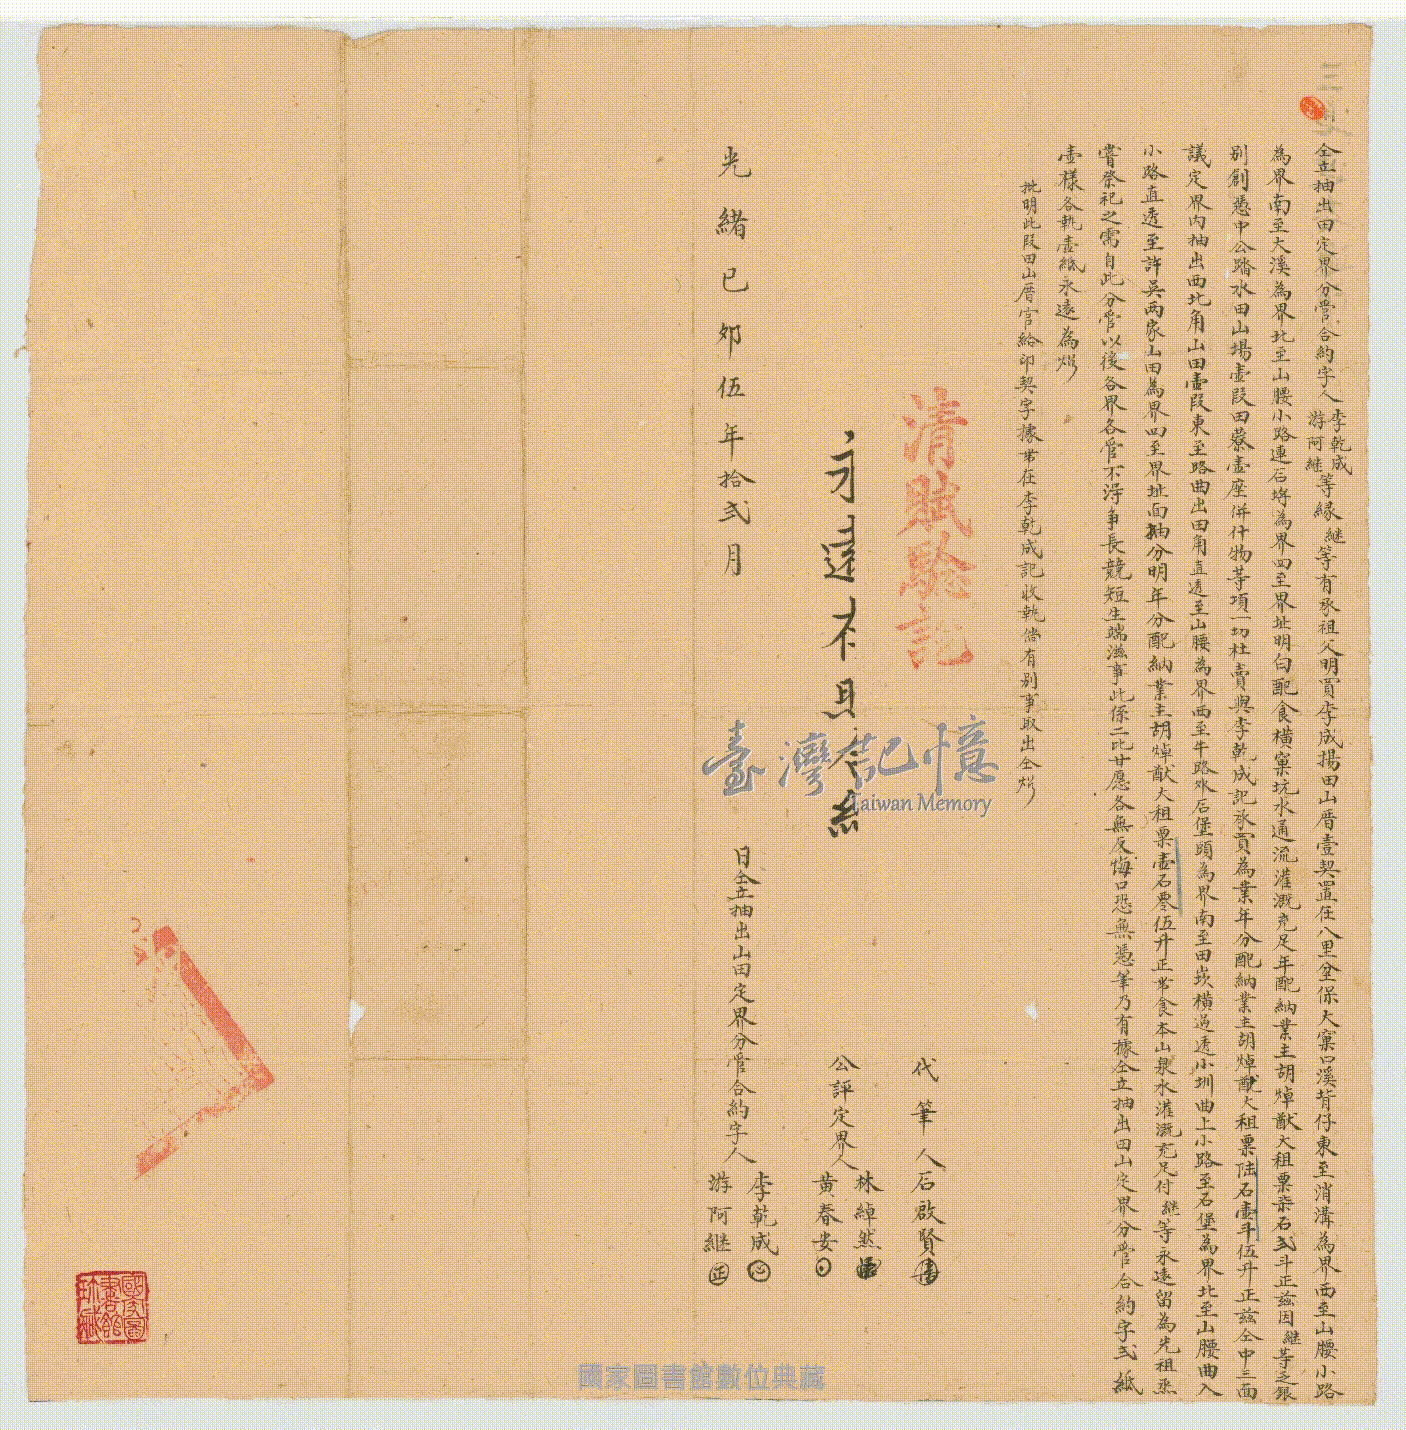 仝立抽出田定界分管合約字人李乾成游阿継等緣継等有承祖父明買李成揚田山厝壹契置在八里坌保大窠口溪背仔東至消溝為界西至山腰小路
為界南至大溪為界北至山腰小路連石埒為界四至界址明白配食橫窠坑水通流灌溉充足年配納業主胡焯猷大租粟柒石弍斗正茲因継等乏銀
別創憑中公踏水田山場壹段田藔壹座併什物等項一切杜賣與李乾成記承買為業年分配納業主胡焯猷大租粟陆石壹斗伍升正茲仝中三面
議定界内抽出西北角山田壹段東至路曲出田角直透至山腰為界西至牛路외石堡頭為界南至田崁橫過透小圳曲上小路至石堡為界北至山腰曲入
小路直透至許吳两家山田為界四至界址面抽分明年分配納業主胡焯猷大租粟壹石零伍升正帶食本山泉水灌溉充足付継等永遠留為先祖烝
嘗祭祀之需自此分管以後各界各管不淂争長競短生端滋事此係二比甘愿各無反悔口恐無憑筆乃有據仝立抽出田山定界分管合約字弍紙
壹樣各執壹紙永遠為炤
批明此段田山厝官給印契字據帶在李乾成記收執倘有別事取出仝炤
清賦驗訖
代筆人石啟賢
公評定界人林綽然
黄春安
光緒己卯伍年拾弍月日仝立抽出山田定界分管合約字人李乾成
游阿継
臺灣記憶
Taiwan Memory
國家圖書館數位典藏
國家圖書館珍藏